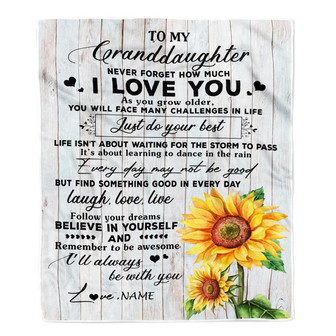 TO MY
Granddaughter
NEVER FORGET HOW MUCH
I LOVE YOU
As you grow older,
YOU WILL FACE MANY CHALLENGES IN LIFE
Just do your best
LIFE ISN'T ABOUT WAITING FOR THE STORM TO PASS
It's about learning to dance in the rain
Every day may not be good
BUT FIND SOMETHING GOOD IN EVERY DAY
laugh, love, live
Follow your dreams
BELIEVE IN YOURSELF
AND
Remember to be awesome
I'll always
be with you
Love, NAME